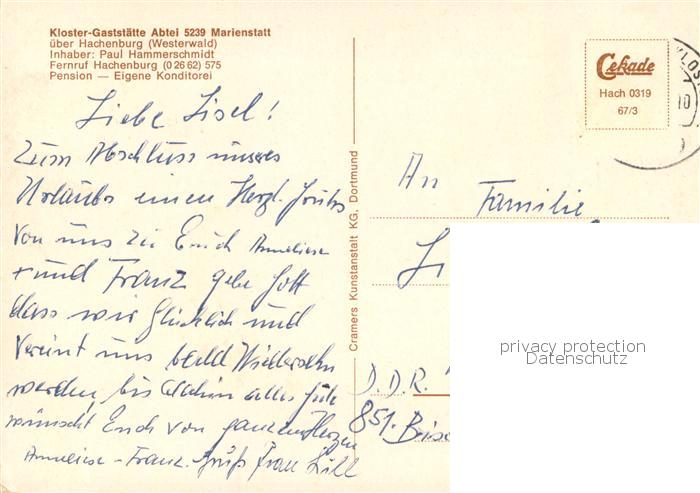 Kloster-Gaststätte Abtei 5239 Marienstatt
über Hachenburg (Westerwald)
Inhaber: Paul Hammerschmidt
Fernruf Hachenburg (0 26 62) 575
Pension — Eigene Konditorei
Liebe Lisel!
Zum Abschluss unseres
Urlaubs einen Herzl.
von uns Anneliese
+ und Franz gebe Gott
dass wir Glücklich und
Vereint uns bald Wiedersehn
werden, bis dahin alles Gute
wünscht Euch von ganzem Herzen
Anneliese - Franz. Gruß Frau Lill
Cramers Kunstanstalt KG, Dortmund
Cekade
Hach 0319
67/3
An Familie
Li
D.D.R.
851.
privacy protection
Datenschutz